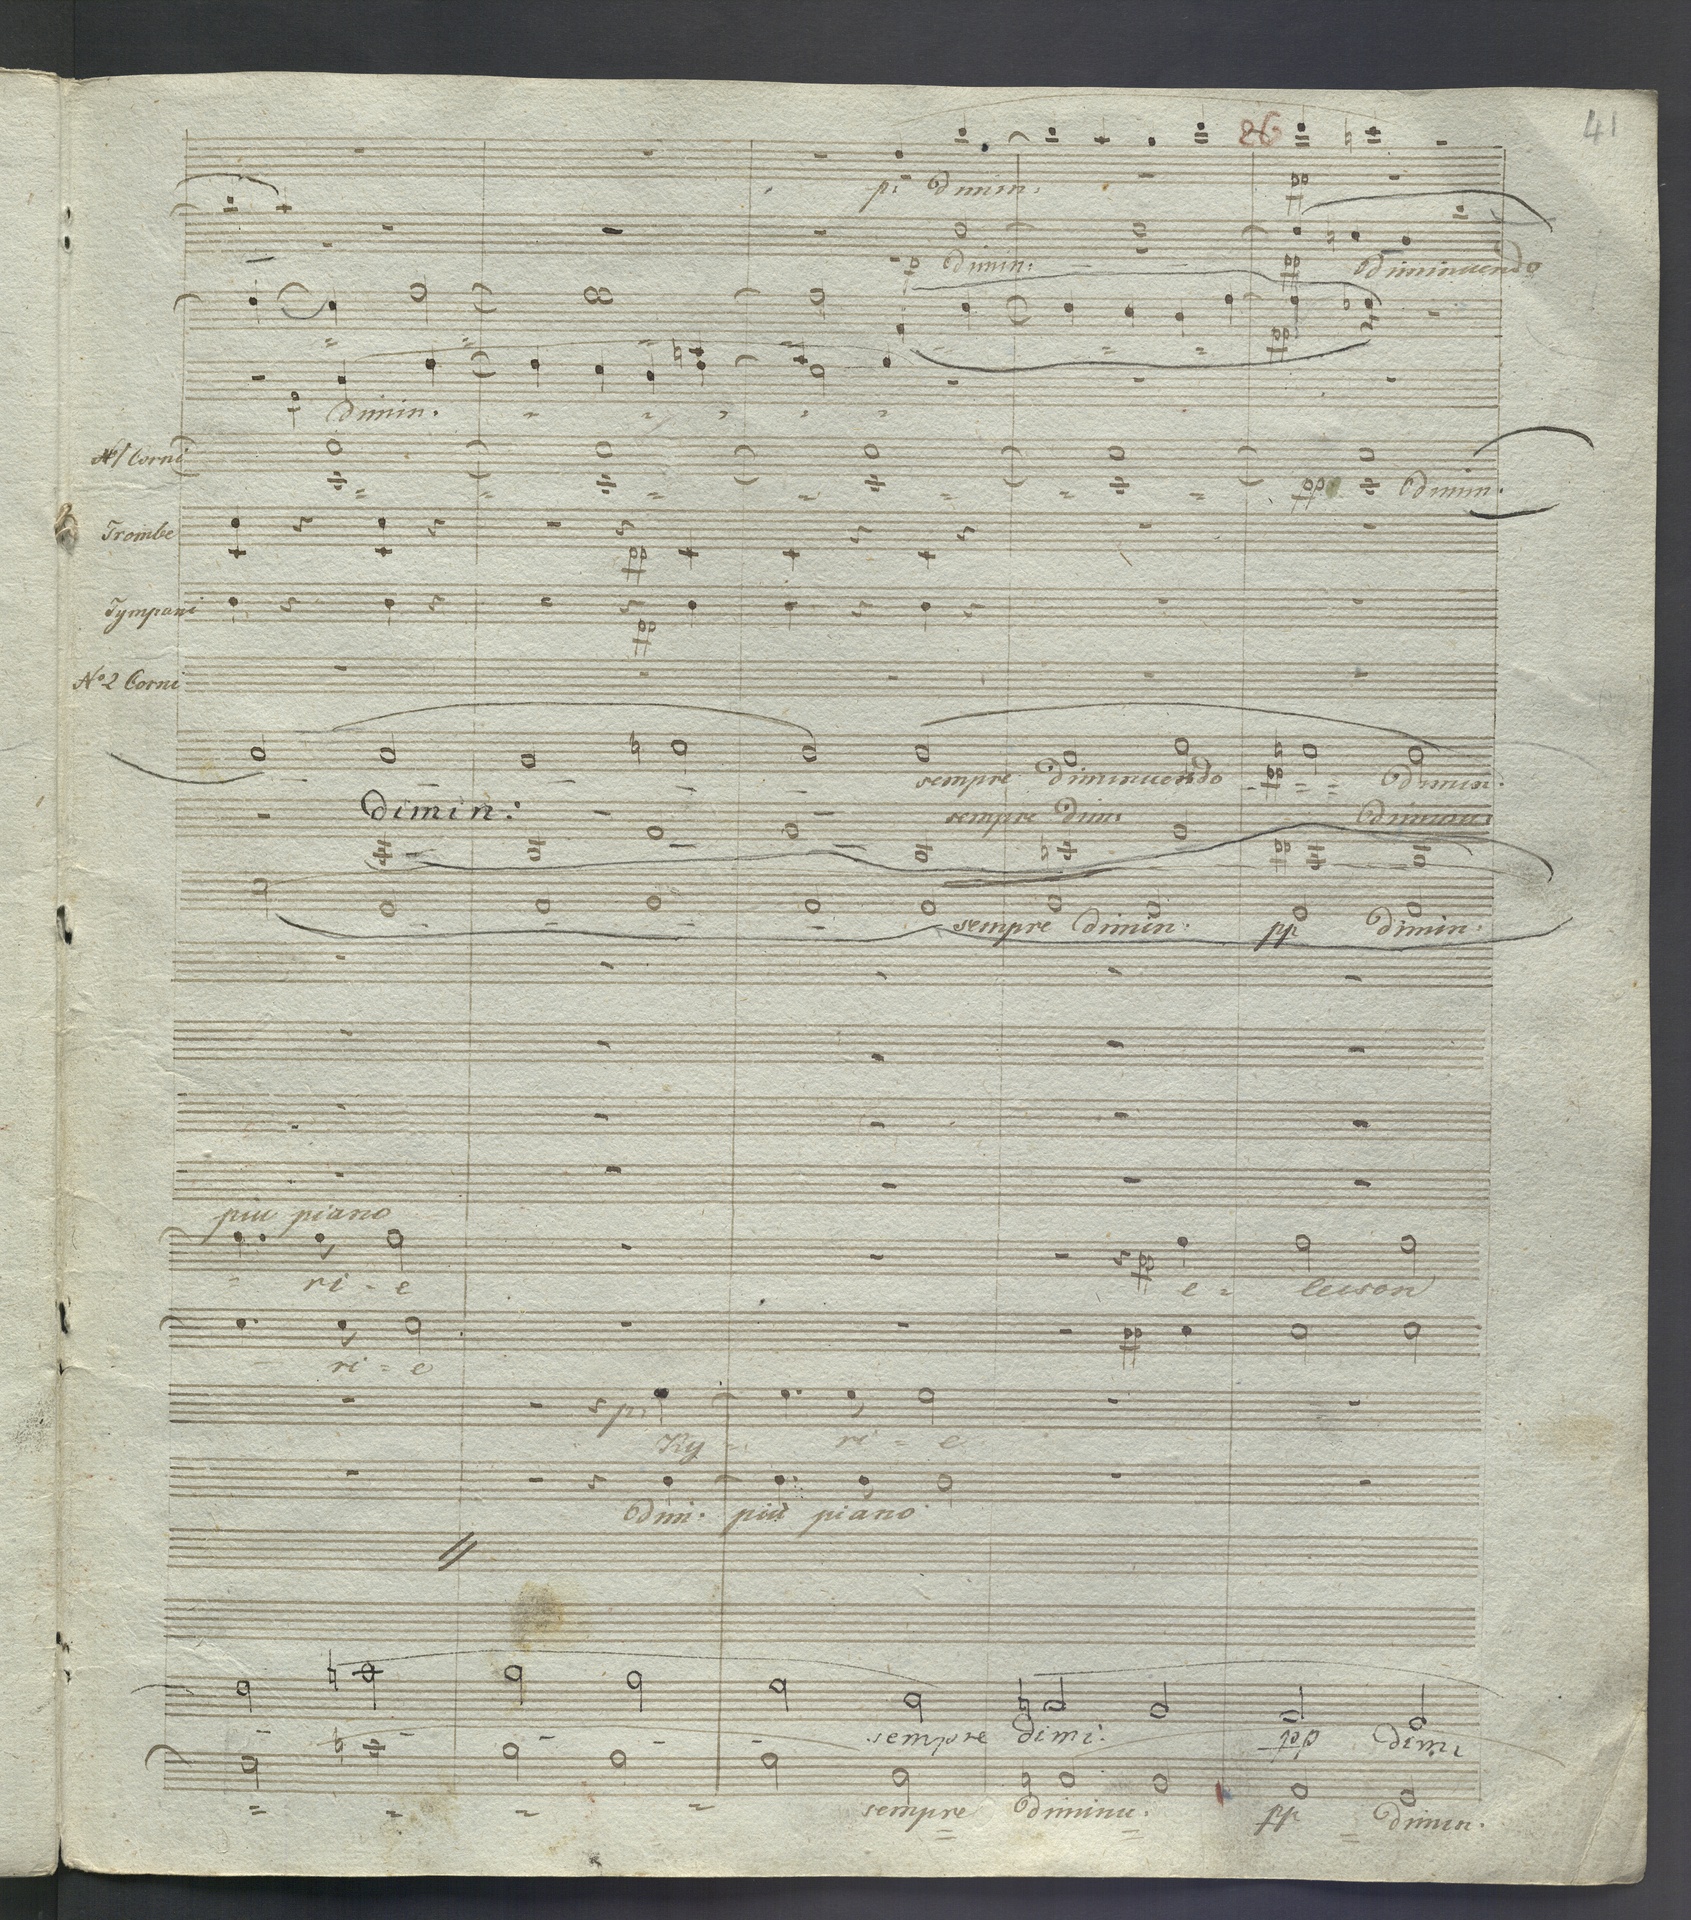 26
41
p: dimin:
pp
p dimin:
pp diminuendo
pp
p dimin.
No 1 Corni
pp dimin.
Trombe
pp
Tympani
pp
No 2 Corni
sempre diminuendo pp dimin.
dimin:
sempre dim: pp
sempre dimin: pp dimin:
piu piano
ri - e
pp
e - leison
ri - e
pp
p:
Ky - ri - e
dim: più piano
sempre dimi: pp dimi
sempre diminu. pp dimin.